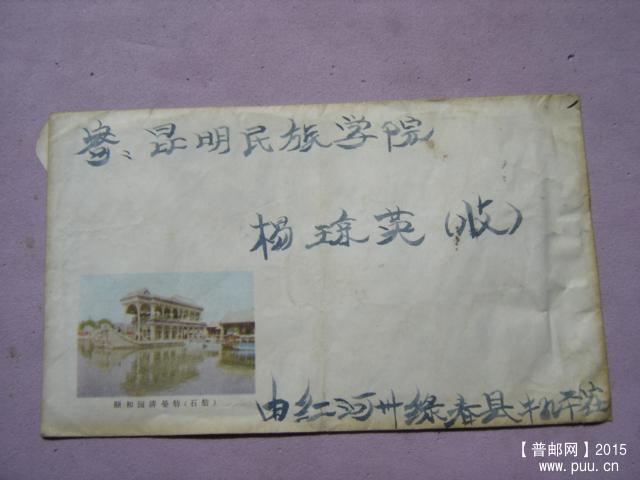 寄、昆明民族学院
杨琼英(收)
颐和园清晏舫(石船)
由红河州绿春县
【普邮网】2015
www.puu.cn